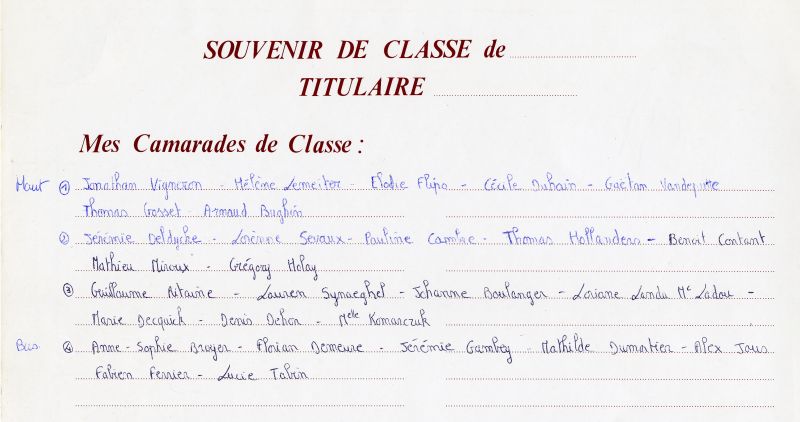 SOUVENIR DE CLASSE de
TITULAIRE
Mes Camarades de Classe :
Haut ① Jonathan Vigneron - Hélène Lemeiter - Elodie Flipo - Cécile Duhain - Gaëtan Vandeputte
Thomas Gosset - Arnaud Bughin
② Jérémie Deldyche - Lorenne Sevaux - Pauline Cambre - Thomas Hollanders - Benoit Contant
Mathieu Miroux - Grégory Molay
③ Guillaume Ritaine - Lauren Synaeghel - Jehanne Boulanger - Loriane Landu Mc Ladou -
Marie Decquick - Denis Dehon - Melle Komarczuk
Bas ④ Anne-Sophie Broyer - Florian Demeure - Jérémie Gambey - Mathilde Dumortier - Alex Joris
Fabien Ferrier - Lucie Tabin